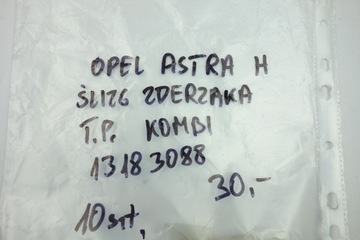 OPEL ASTRA H
ŚLIZG ZDERZAKA
T.P. KOMBI
13183088
30,-
10szt,